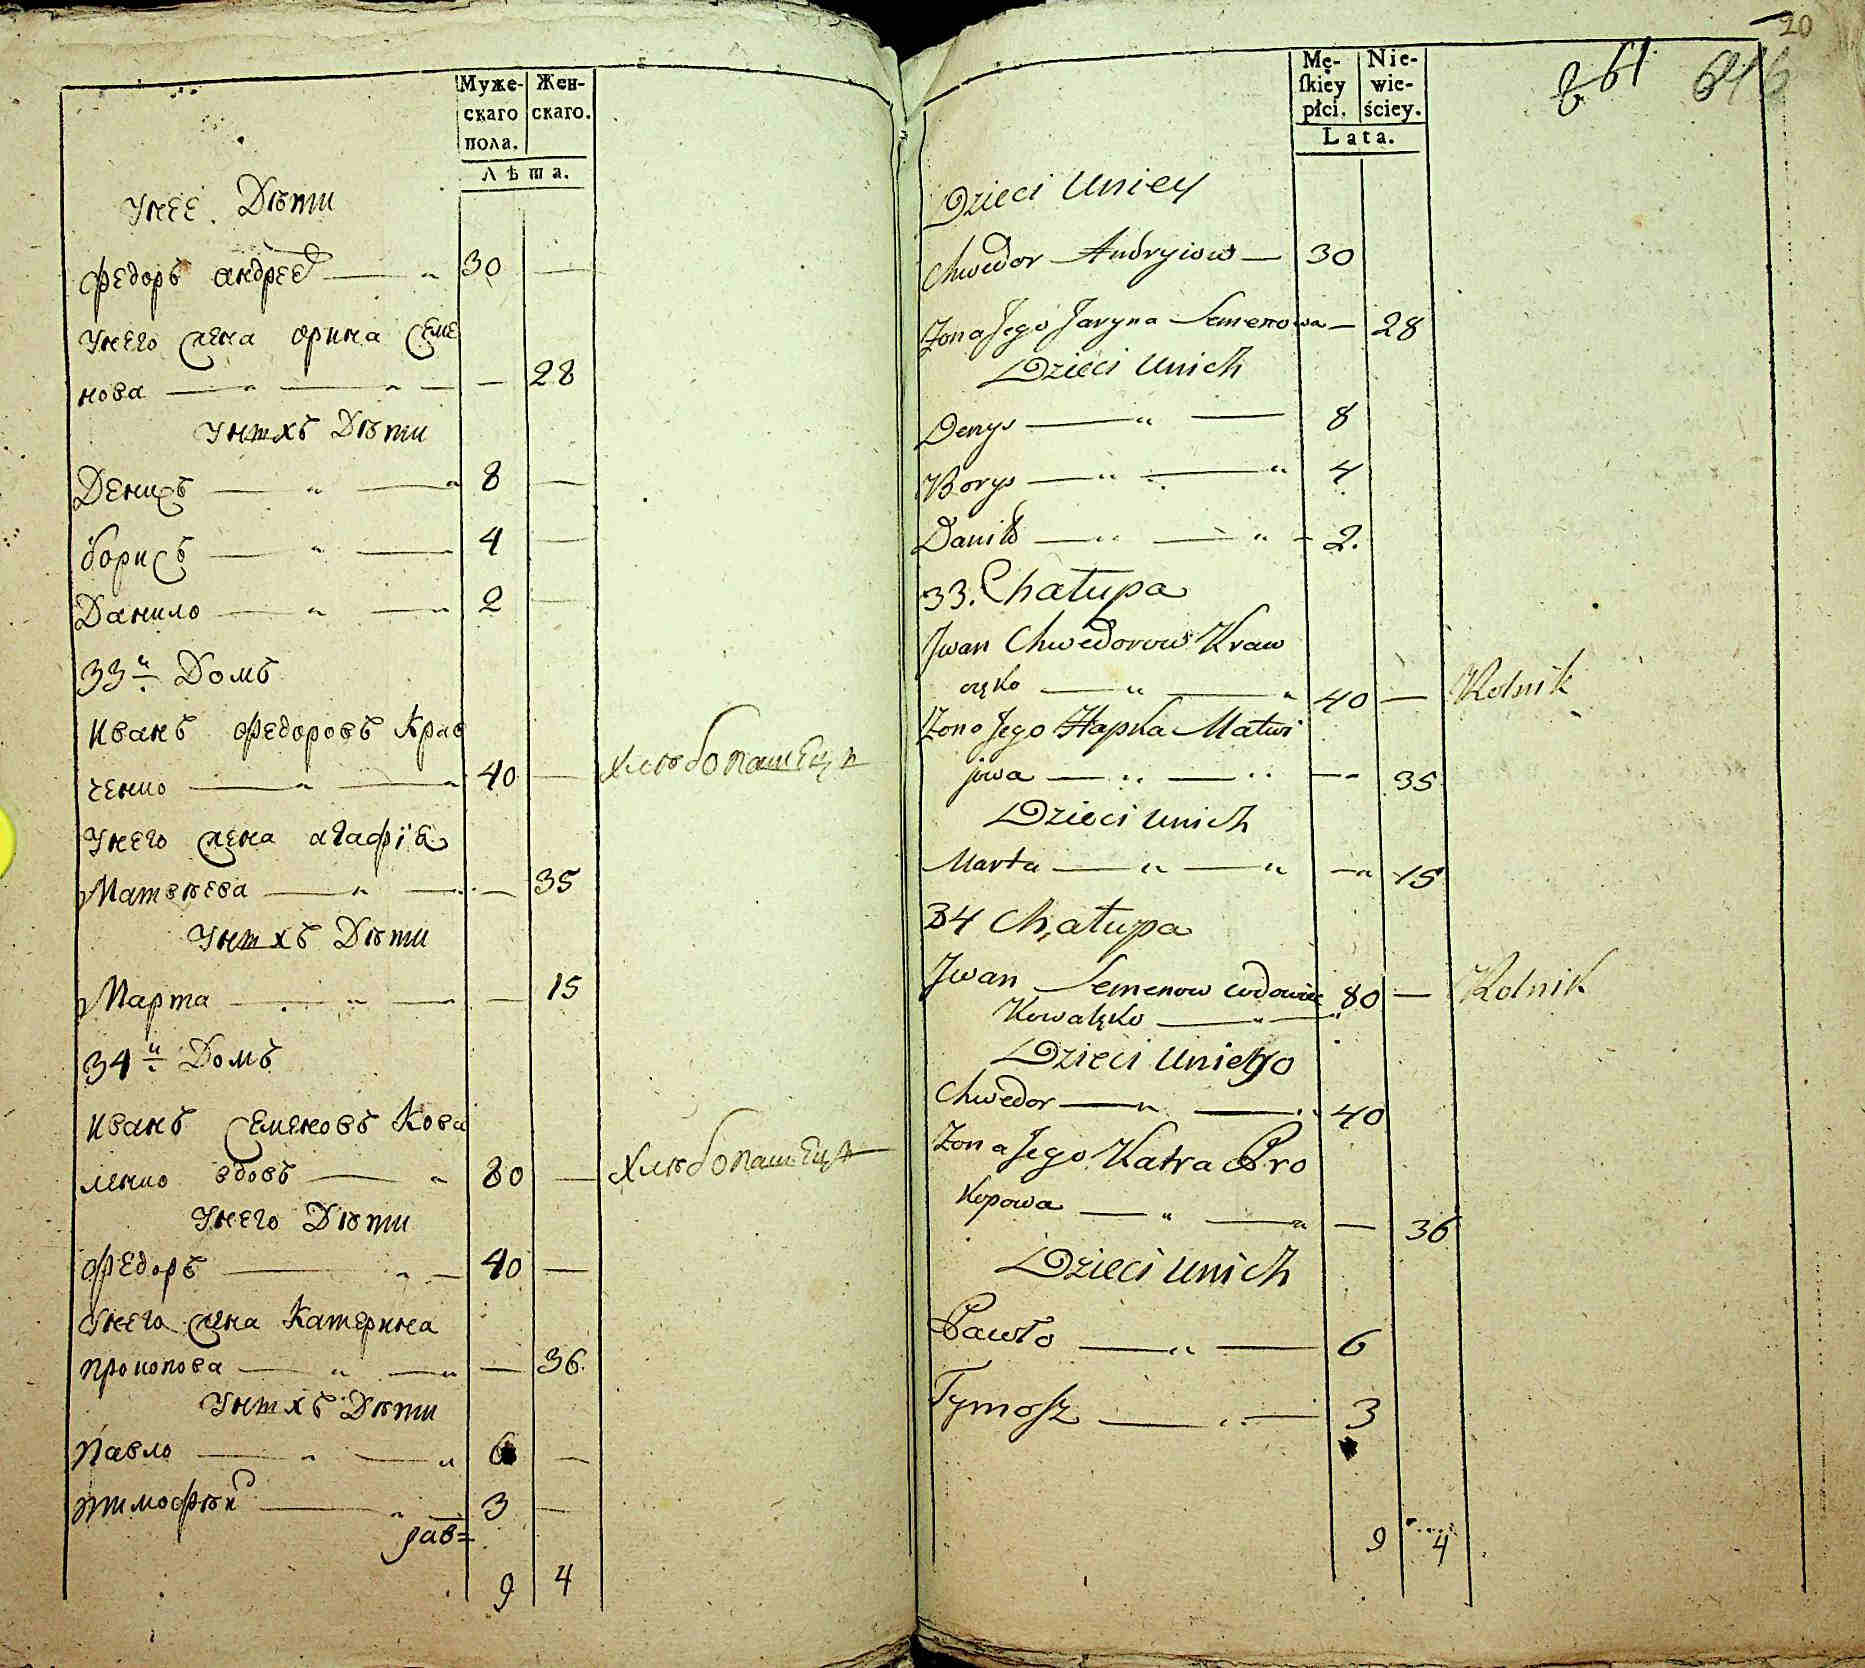 Муже-
скаго
пола.
Жен-
скаго.
Лѣта.
Унее Дѣти
Федоръ андрее — 30 —
Унего жена орина Семе
нова — — 28
Унихъ Дѣти
Денисъ — 8 —
борисъ — 4 —
Данило — 2 —
33й Домъ
Иванъ Федоровъ Крав
ченко — 40 — хлѣбопашецъ
Унего жена агафія
Матвѣева — — 35
Унихъ Дѣти
Марта — — 15
34й Домъ
Иванъ Семеновъ Кова
ленко вдовъ — 80 — хлѣбопашецъ
Унего Дѣти
Федоръ — 40 —
Унего жена Катерина
прокопова — — 36
Унихъ Дѣти
Павло — 6 —
тимофѣй — 3 —
9 4
20
Mę-
ſkiey
płci.
Nie-
wie-
ściey.
Lata.
Dzieci Uniey
Chwedor Andryiow — 30
Żona Jego Jaryna Semenowa — 28
Dzieci Unich
Denys — 8
Borys — 4
Daniło — 2.
33. Chałupa
Jwan Chwedorow Kraw
częko — 40 — Rolnik
Żona Jego Hapka Matwi
jowa — — 35
Dzieci Unich
Marta — — 15
34 Chałupa
Jwan Semenow wdowiec 80 — Rolnik
Kowalęko —
Dzieci Uniego
Chwedor — 40
Żona Jego Katra Pro
kopowa — — 36
Dzieci Unich
Pawło — 6
Tymosz — 3
9 4